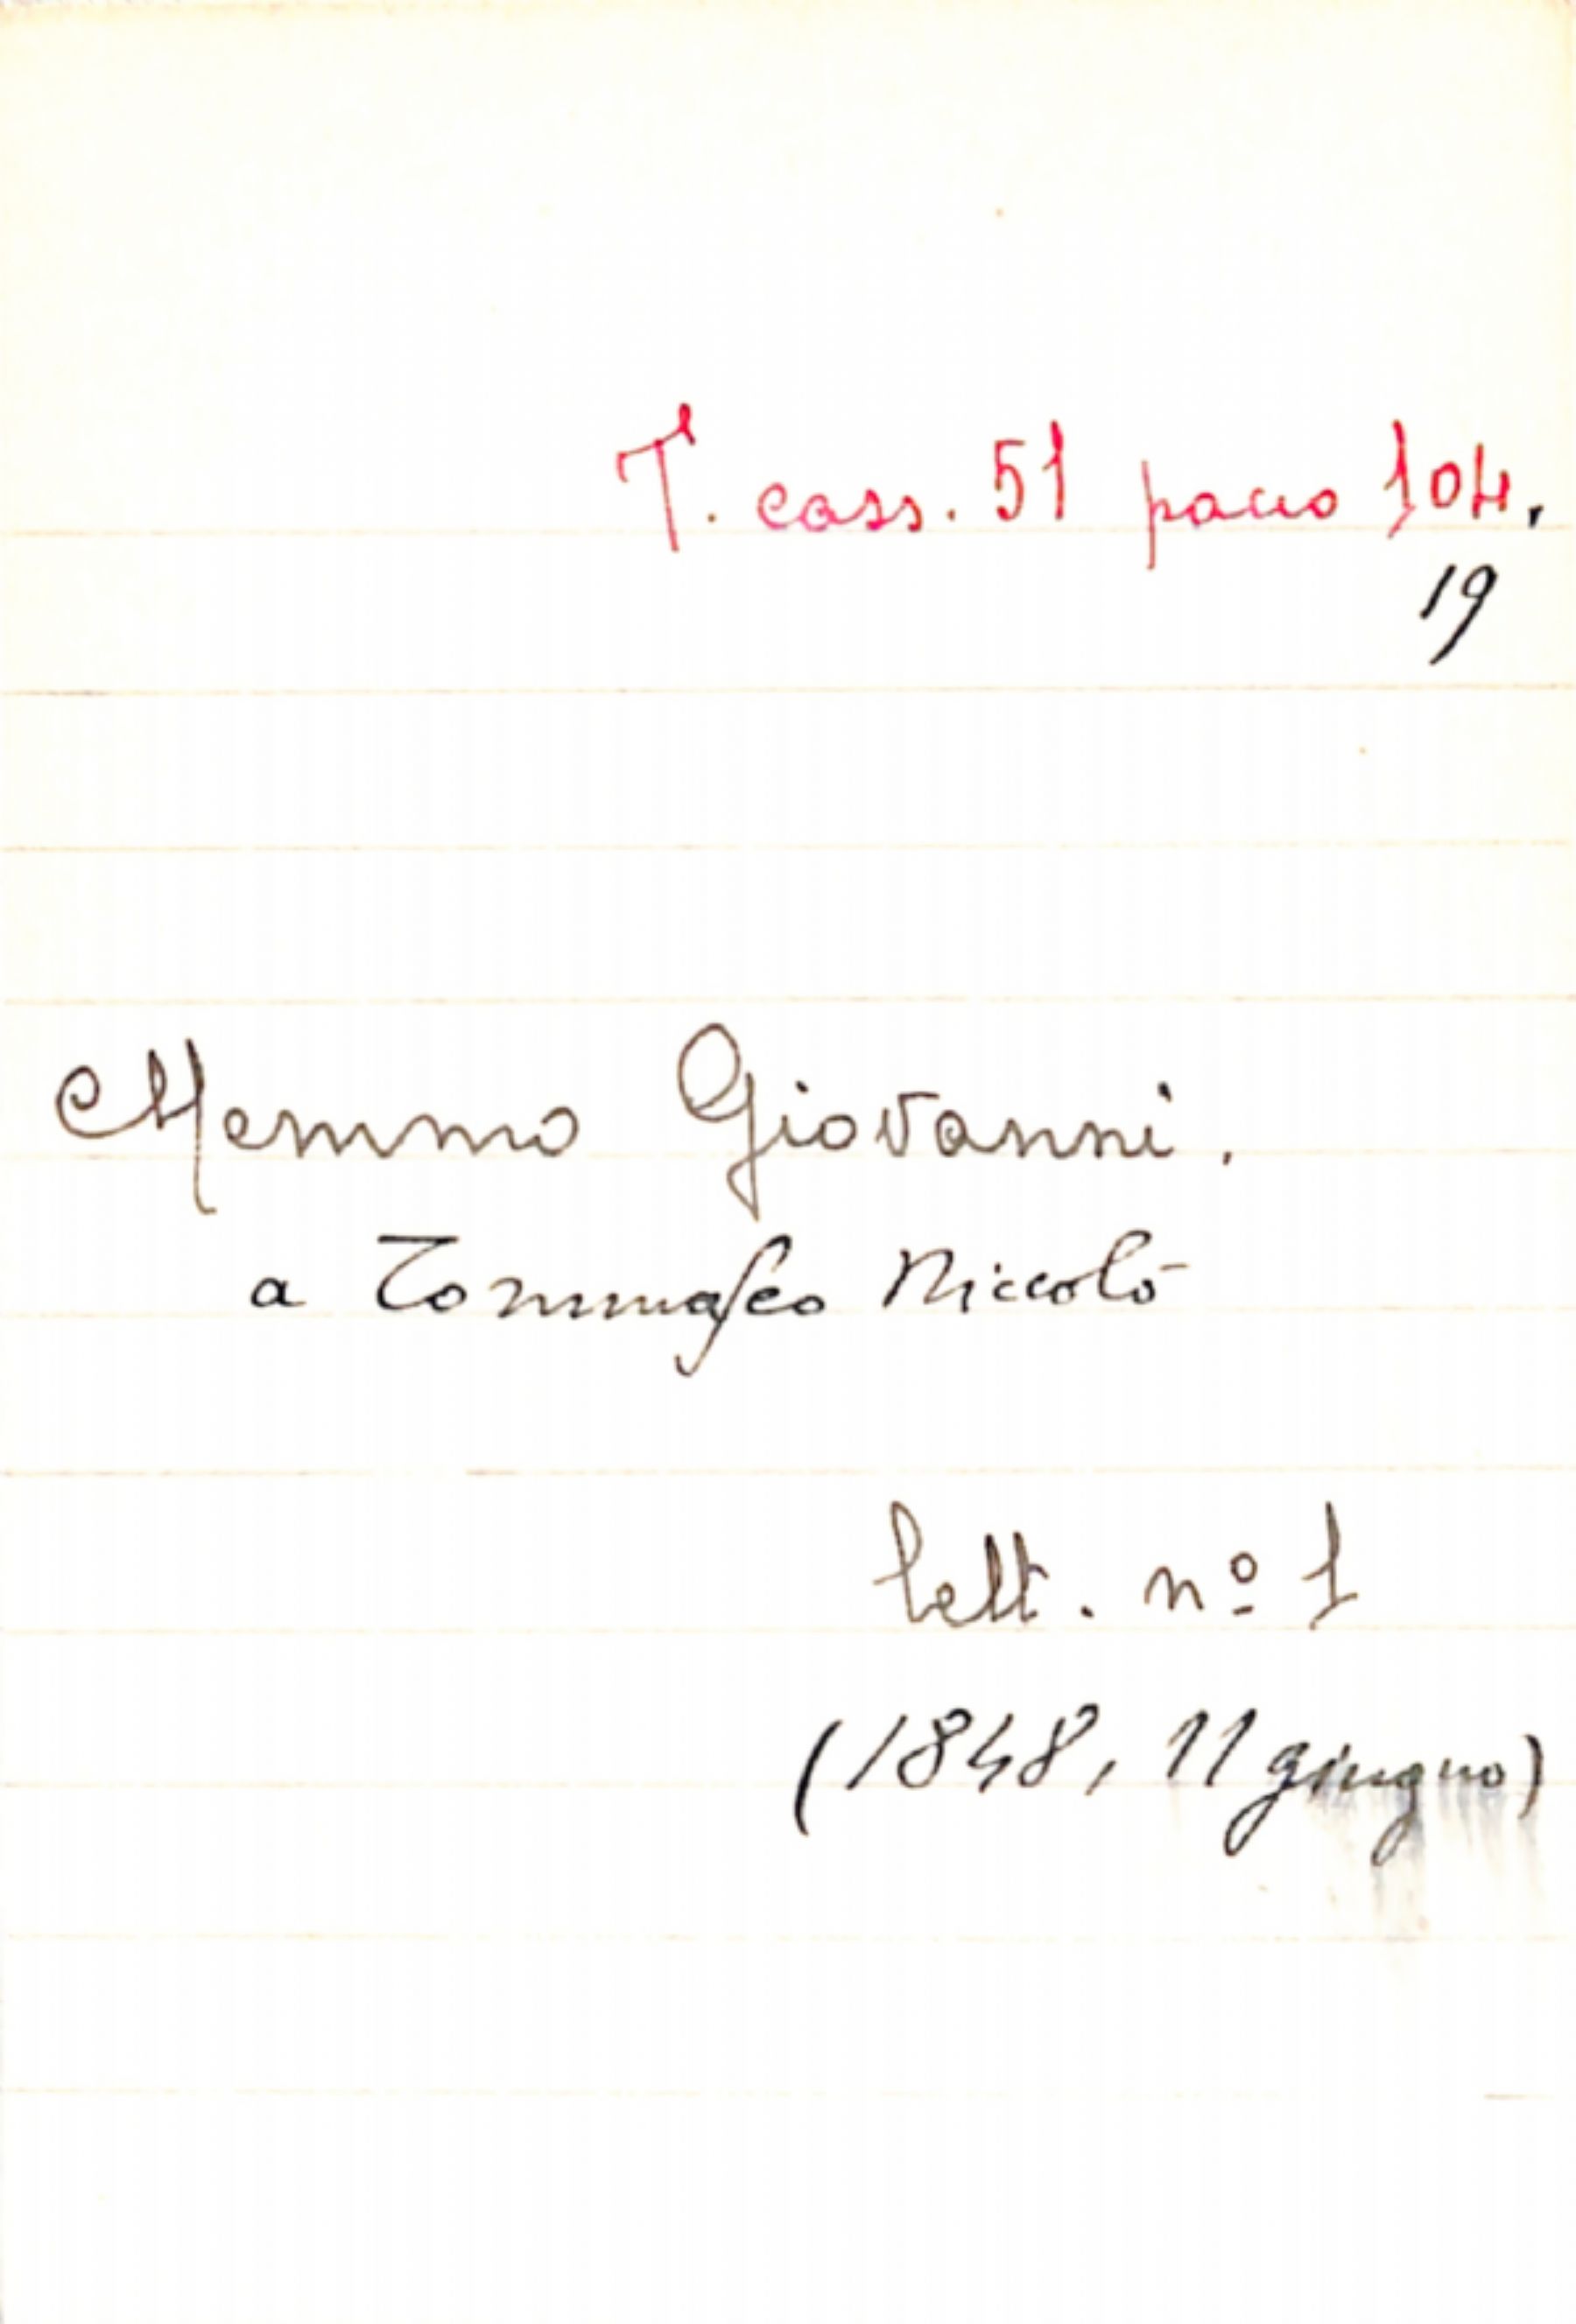 T. cass. 51 pacco 104.
19
Memmo Giovanni.
a Tommaseo Niccolò
lett. nº 1
(1848, 11 giugno)